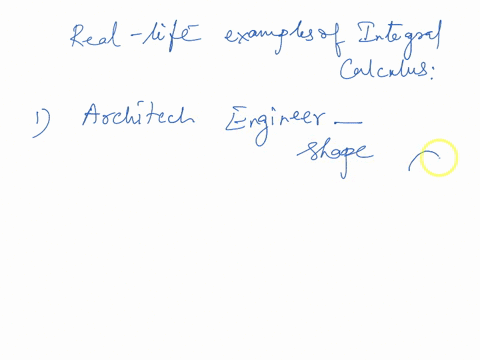 Real-life examples of Integral
Calculus:
1) Architech Engineer —
shape